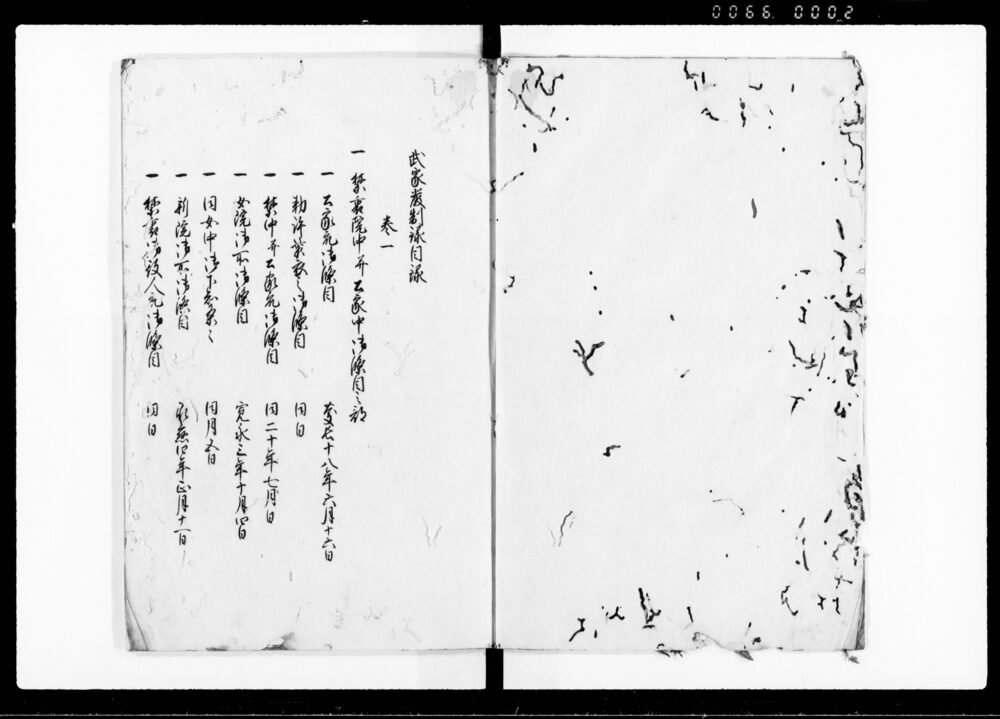 0066 0002
武家厳制録目録
巻一
一 禁裏院中并公家中御条目之部
一 公家衆御条目 慶長十八年六月十六日
一 勅許紫衣之御条目 同日
一 禁中并公家衆御条目 同二十年七月日
一 女院御所御条目 寛永三年十月四日
一 同女中御下知条々 同月五日
一 新院御所御条目 承応四年正月十一日
一 禁裏御役人衆御条目 同日